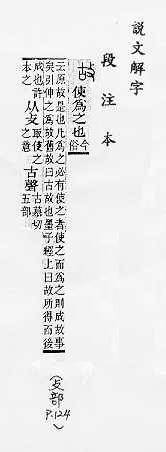 說文解字
段注本
故 使爲之也 今俗
云原故是也凡爲之必有使之者使之而爲之則成故事
矣引伸之爲故舊故曰古故也墨子經上曰故所得而後
成也許本之 从攴 取使之之意 古聲 古慕切五部
(攴部
P.124)